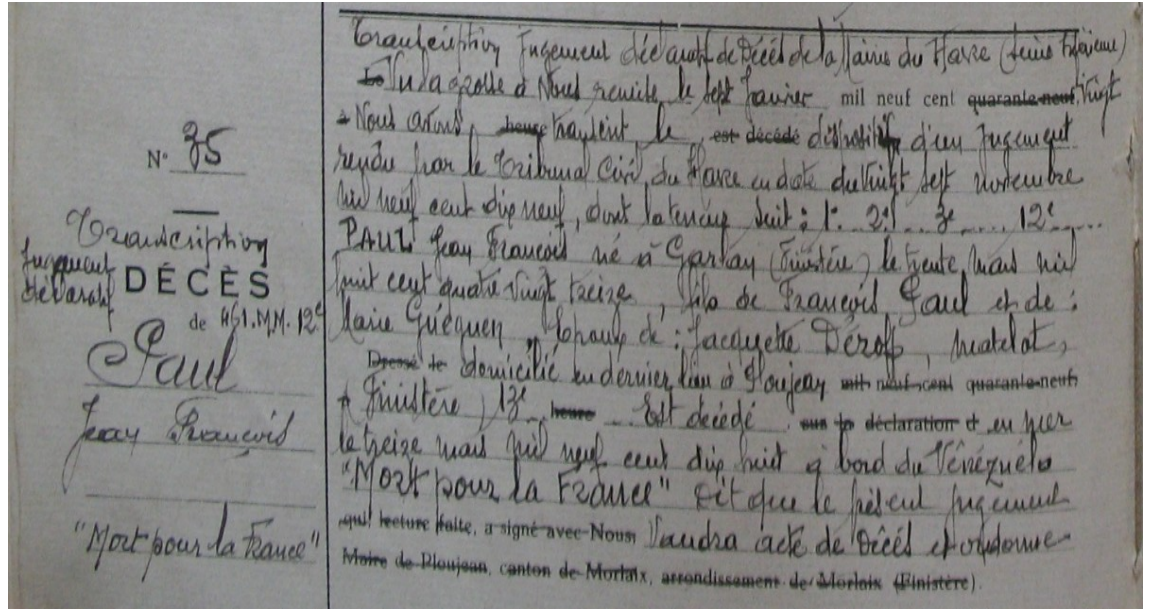 N° 35
Transcription
Jugement
déclaratif
DÉCÈS
de 461.M.M. 12e
Paul
Jean François
"Mort pour la France"
Transcription Jugement déclaratif de Décès de la Mairie du Havre (Seine Inférieure)
Vu la grosse à Nous remise le sept Janvier mil neuf cent quarante-neuf Vingt
Nous avons, heure transcrit le est décédé dispositif d'un Jugement
rendu par le Tribunal Civil du Havre en date du Vingt sept novembre
mil neuf cent dix neuf, dont la teneur suit : 1° 2° 3e .... 12e ....
PAUL Jean François né à Garlan (Finistère) le trente mars mil
huit cent quatre vingt treize, fils de François Paul et de :
Marie Guéguen, époux de : Jacquette Déroff, matelot,
Dressé le domicilié en dernier lieu à Ploujean mil neuf cent quarante-neuf
Finistère) 13e heure Est décédé sur la déclaration d en mer
le treize mars mil neuf cent dix huit à bord du Vénézuéla
"Mort pour la France" Dit que le présent jugement
qui, lecture faite, a signé avec Nous, Vaudra acte de Décès et ordonne
Maire de Ploujean, canton de Morlaix, arrondissement de Morlaix (Finistère).